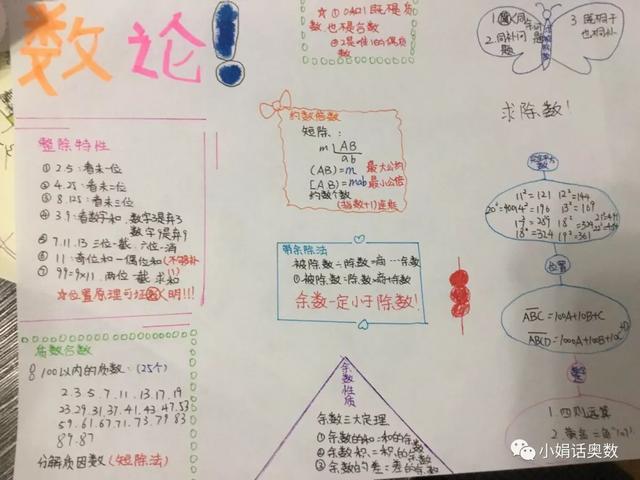 数论!
☆①0和1既不是质
数,也不是合数
②2是唯一的偶质
数
2.同补问
题
3 既同于
也同补
求除数!
整除特性
①2.5:看末一位
②4.25:看末二位
③8.125:看末三位
④3.9:看数字和,数字3是弃3
数字9是弃9
⑤7.11.13 三位一截,六位一消
⑥11:奇位和-偶位和(不够补
11)
⑦99=9×11,两位一截求和
☆位置原理可证明!!!
约数倍数
短除:
m AB
ab
(AB)=m 最大公约
[AB]=mab 最小公倍
约数个数
(指数+1)连乘
带余除法
被除数÷除数=商…余数
被除数=除数×商+余数
余数一定小于除数!
11²=121 12²=144
20²=400 14²=196 13²=169
17²=289
18²=324 19²=361
位置
ABC=100A+10B+C
质数合数
100以内的质数:(25个)
2.3.5.7.11.13.17.19
23.29.31.37.41.43.47.53
59.61.67.71.73.79.83
89.97
分解质因数(短除法)
余数性质
余数三大定理
①余数的和=和的余数
②余数的积=积的余数
③余数的差=差的余数
1.四则运算
小娟话奥数